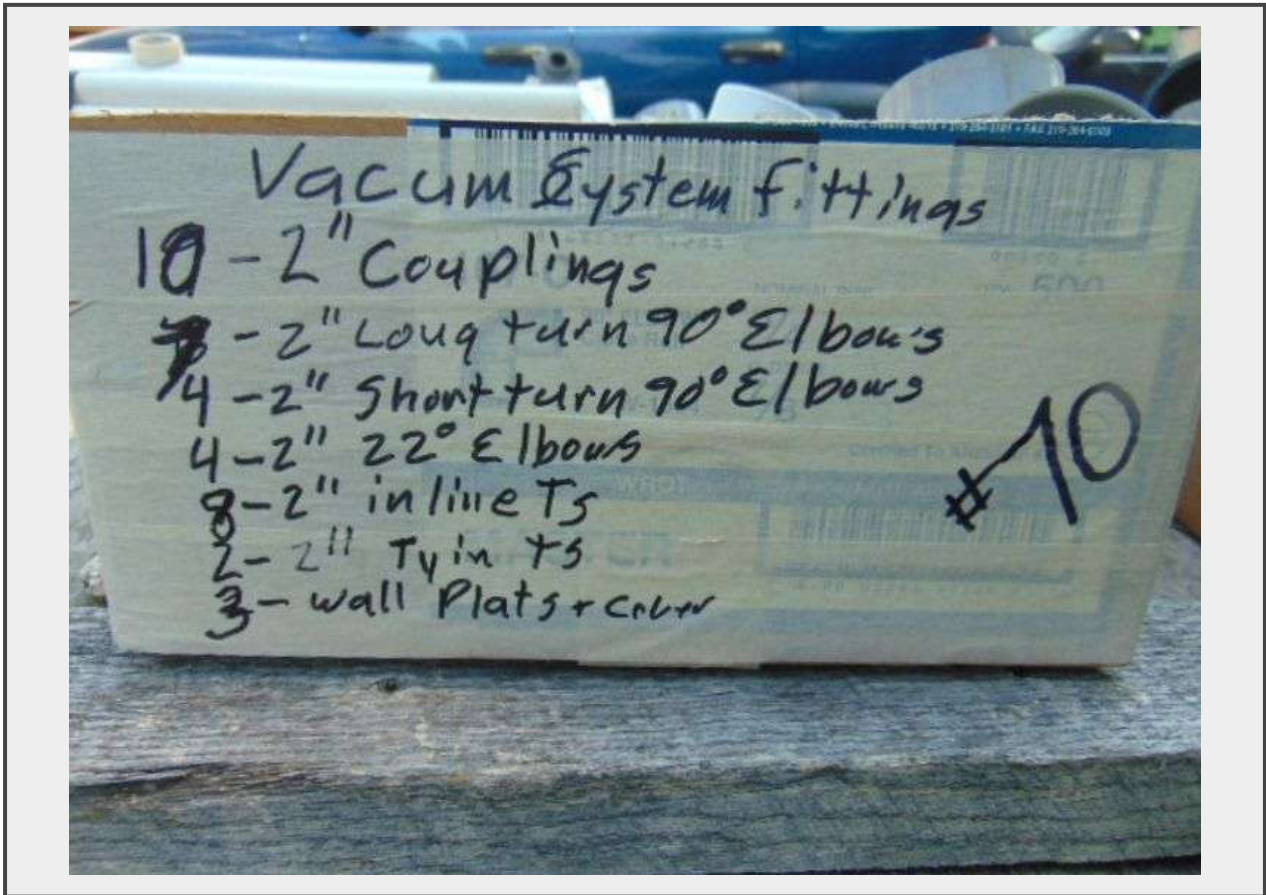 Vacum System fittings
10 - 2" Couplings
- 2" Long turn 90° Elbows
4 - 2" Short turn 90° Elbows
4 - 2" 22° Elbows
8 - 2" in line Ts
2 - 2" Ty in Ts
3 - wall Plats + Cover
#10